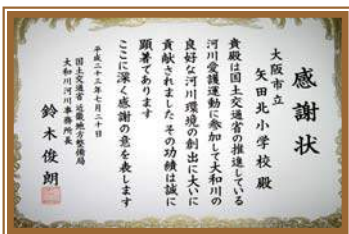 感謝状
大阪市立
矢田北小学校殿
貴殿は国土交通省の推進している
河川愛護運動に参加して大和川の
良好な河川環境の創出に大いに
貢献されました その功績は誠に
顕著であります
ここに深く感謝の意を表します
平成二十三年七月二十日
国土交通省 近畿地方整備局
大和川河川事務所長
鈴木俊朗